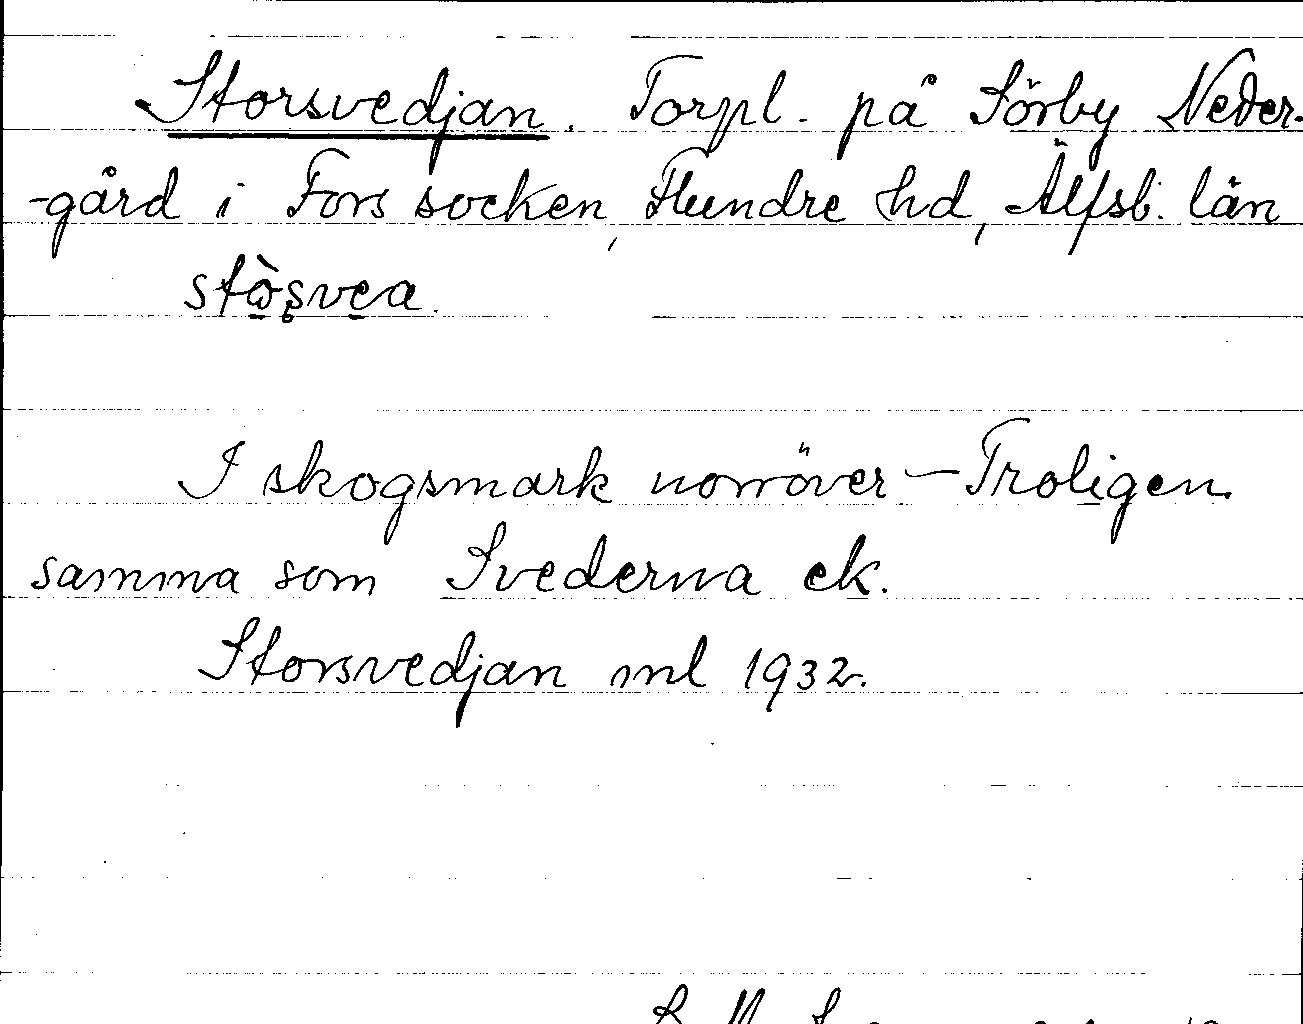 Storsvedjan. Torpl. på Sörby Neder-
-gård i Fors socken, Flundre hd, Älfsb. län
stò̱s̨ve̱a.
I skogsmark norröver – Troligen
samma som Svederna ek.
Storsvedjan snl 1932.